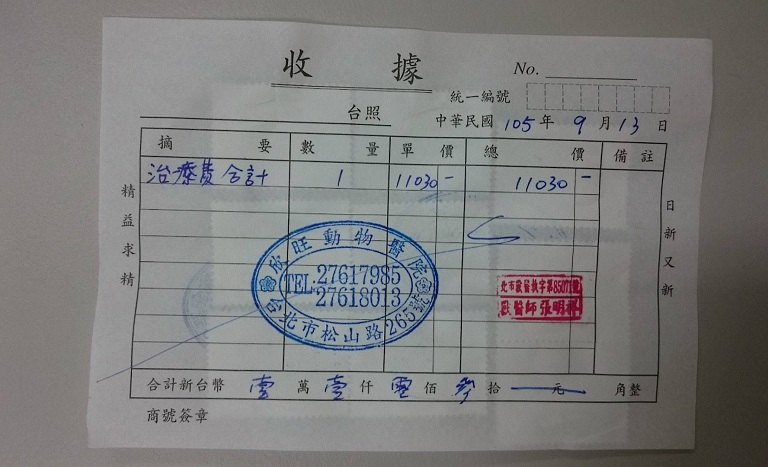 收據
No.
統一編號
台照
中華民國 105 年 9 月 13 日
摘要 數量 單價 總價 備註
治療費合計 1 11030- 11030-
精益求精
日新又新
欣旺動物醫院
TEL:27617985
27618013
台北市松山路265號
獸醫師 張明
合計新台幣 壹 萬 壹 仟 零 佰 參 拾 元 角整
商號簽章